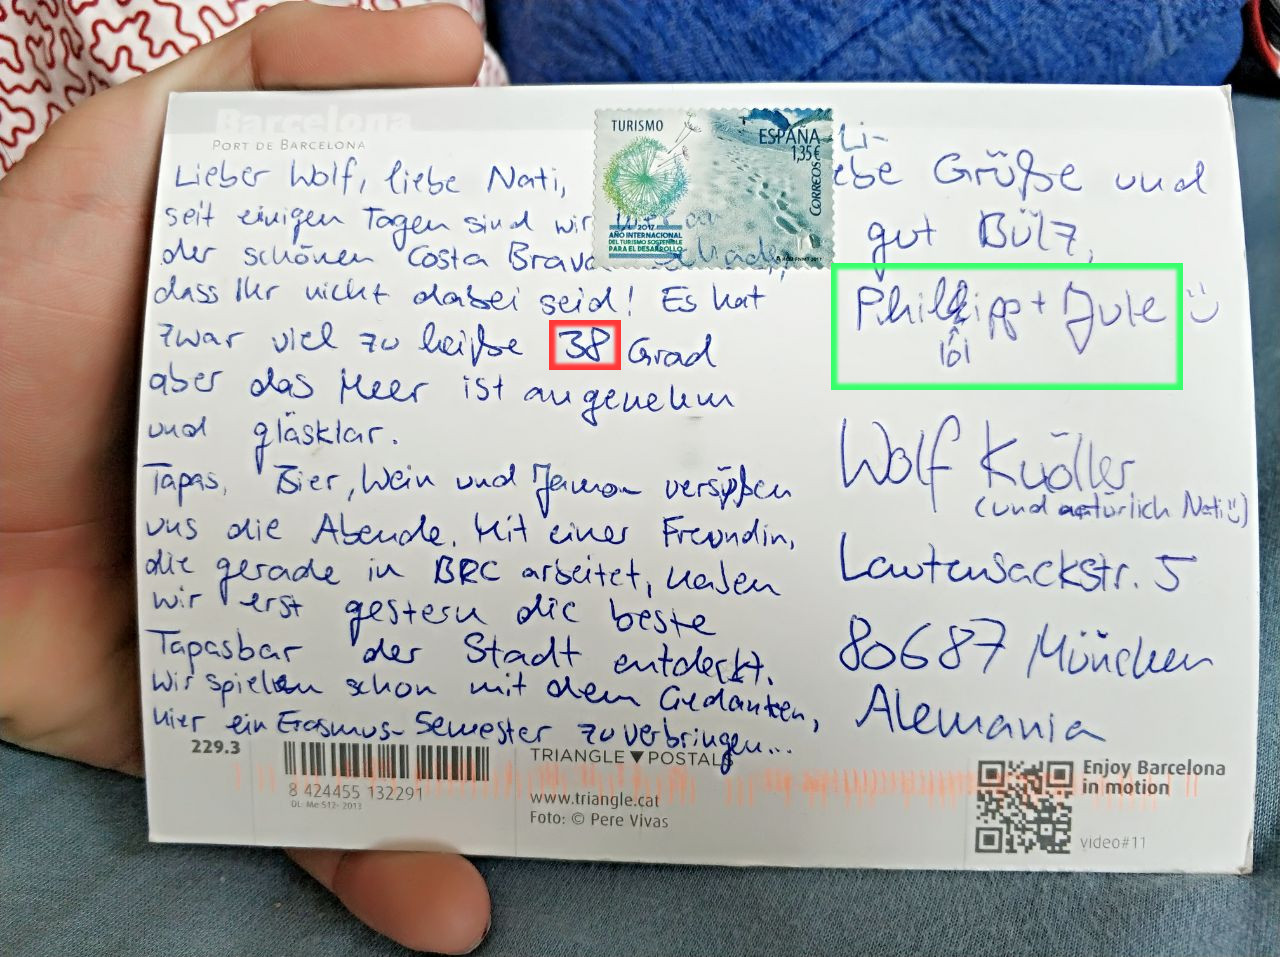 Barcelona
PORT DE BARCELONA
Lieber Wolf, liebe Nati,
seit einigen Tagen sind wir hier an
der schönen Costa Brava. Schade,
dass Ihr nicht dabei seid! Es hat
zwar viel zu heiße 38 Grad
aber das Meer ist angenehm
und glasklar.
Tapas, Bier, Wein und Jamon versüßen
uns die Abende. Mit einer Freundin,
die gerade in BRC arbeitet, haben
wir erst gestern die beste
Tapasbar der Stadt entdeckt.
Wir spielen schon mit dem Gedanken,
hier ein Erasmus-Semester zu verbringen...
TURISMO
ESPAÑA
1,35€
CORREOS
2017
AÑO INTERNACIONAL
DEL TURISMO SOSTENIBLE
PARA EL DESARROLLO
Li-
ebe Grüße und
gut Bülz,
Philipp + Jule
lol
Wolf Knöller
(und natürlich Nati)
Lautensackstr. 5
80687 München
Alemania
229.3
8 424455 132291
DL: Me 512- 2013
TRIANGLE POSTALS
www.triangle.cat
Foto: © Pere Vivas
Enjoy Barcelona
in motion
video#11